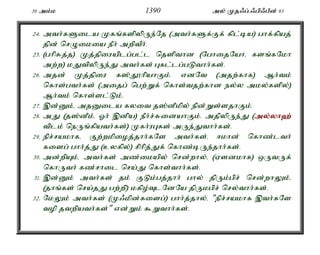 30 அம்ம 1390 அல் முதஃப்ஃபிஃபீன் 83
24. அவர்களுடைய முகங்களிலிருந்தே (அவர்களுக்குக் கிட்டிய) பாக்கியத்
தின் செழுமையை நீர் அறிவீர்.
25. (பரிசுத்த) முத்திரையிடப்பட்ட தெளிவான (போதையோ, களங்கமோ
அற்ற) மதுவிலிருந்து அவர்கள் புகட்டப்படுவார்கள்.
26. அதன் முத்திரை கஸ்தூரியாகும். எனவே (அதற்காக) ஆர்வம்
கொள்பவர்கள் (அதைப் பெற்றுக் கொள்வதற்கான நல்ல அமல்களில்)
ஆர்வம் கொள்ளட்டும்.
27. இன்னும், அதனுடைய கலவை தஸ்னீமில் நின்றுள்ளதாகும்.
28. அது (தஸ்னீம், ஓர் இனிய) நீர்ச்சுனையாகும். அதிலிருந்து (அல்லாஹ்
விடம் நெருங்கியவர்கள்) முகர்ரபுகள் அருந்துவார்கள்.
29. நிச்சயமாக, குற்றமிழைத்தார்களே அவர்கள், ஈமான் கொண்டவர்
களைப் பார்த்து (உலகில்) சிரித்துக் கொண்டிருந்தார்கள்.
30. அன்றியும், அவர்கள் அண்மையில் சென்றால், (ஏளனமாக) ஒருவருக்
கொருவர் கண்சாடை செய்து கொள்வார்கள்.
31. இன்னும் அவர்கள் தம் குடும்பத்தார் பால் திரும்பிச் சென்றாலும்,
(தாங்கள் செய்தது பற்றி) மகிழ்வுடனேயே திரும்பிச் செல்வார்கள்.
32. மேலும் அவர்கள் (முஃமின்களைப்) பார்த்தால், "நிச்சயமாக இவர்களே
வழி தவறியவர்கள்" என்றும் கூறுவார்கள்.